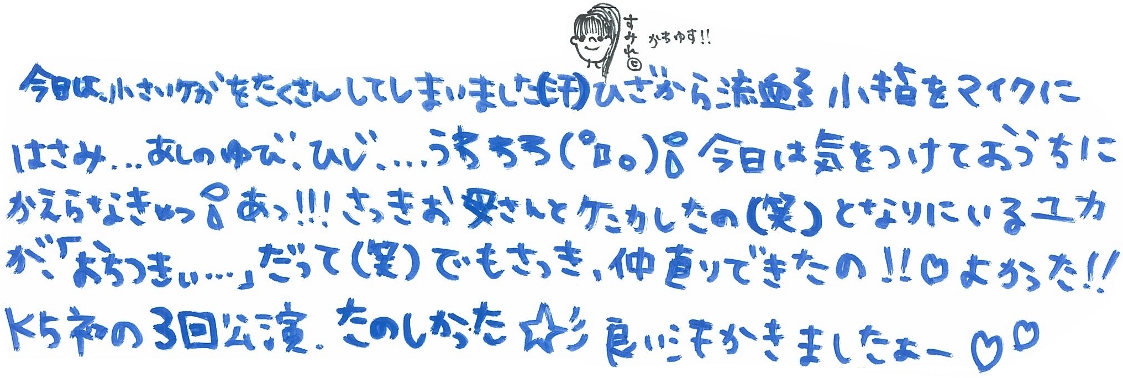 すみれ©
かちゆす!!
今日は、小さいケガをたくさんしてしまいました(汗)ひざから流血💧小指をマイクに
はさみ…あしのゆび、ひじ、…,うちちろ(°ロ。)💧今日は気をつけておうちに
かえらなきゅっ💧あっ!!!さっきお母さんとケンカしたの(笑)となりにいるユカ
が、「おちつきぃ……」だって(笑)でもさっき、仲直りできたの!!♡よかった!!
K5初の3回公演、たのしかった☆彡良い汗もかきましたぁー♡♡